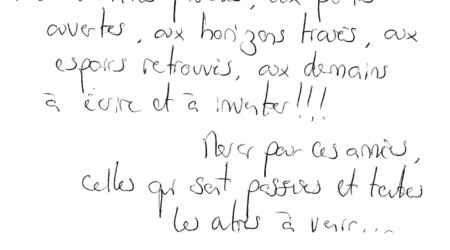 ouvertes, aux horizons tracés, aux
espoirs retrouvés, aux demains
à écrire et à inventer!!!
Merci pour ces années,
celles qui sont passées et toutes
les autres à venir...